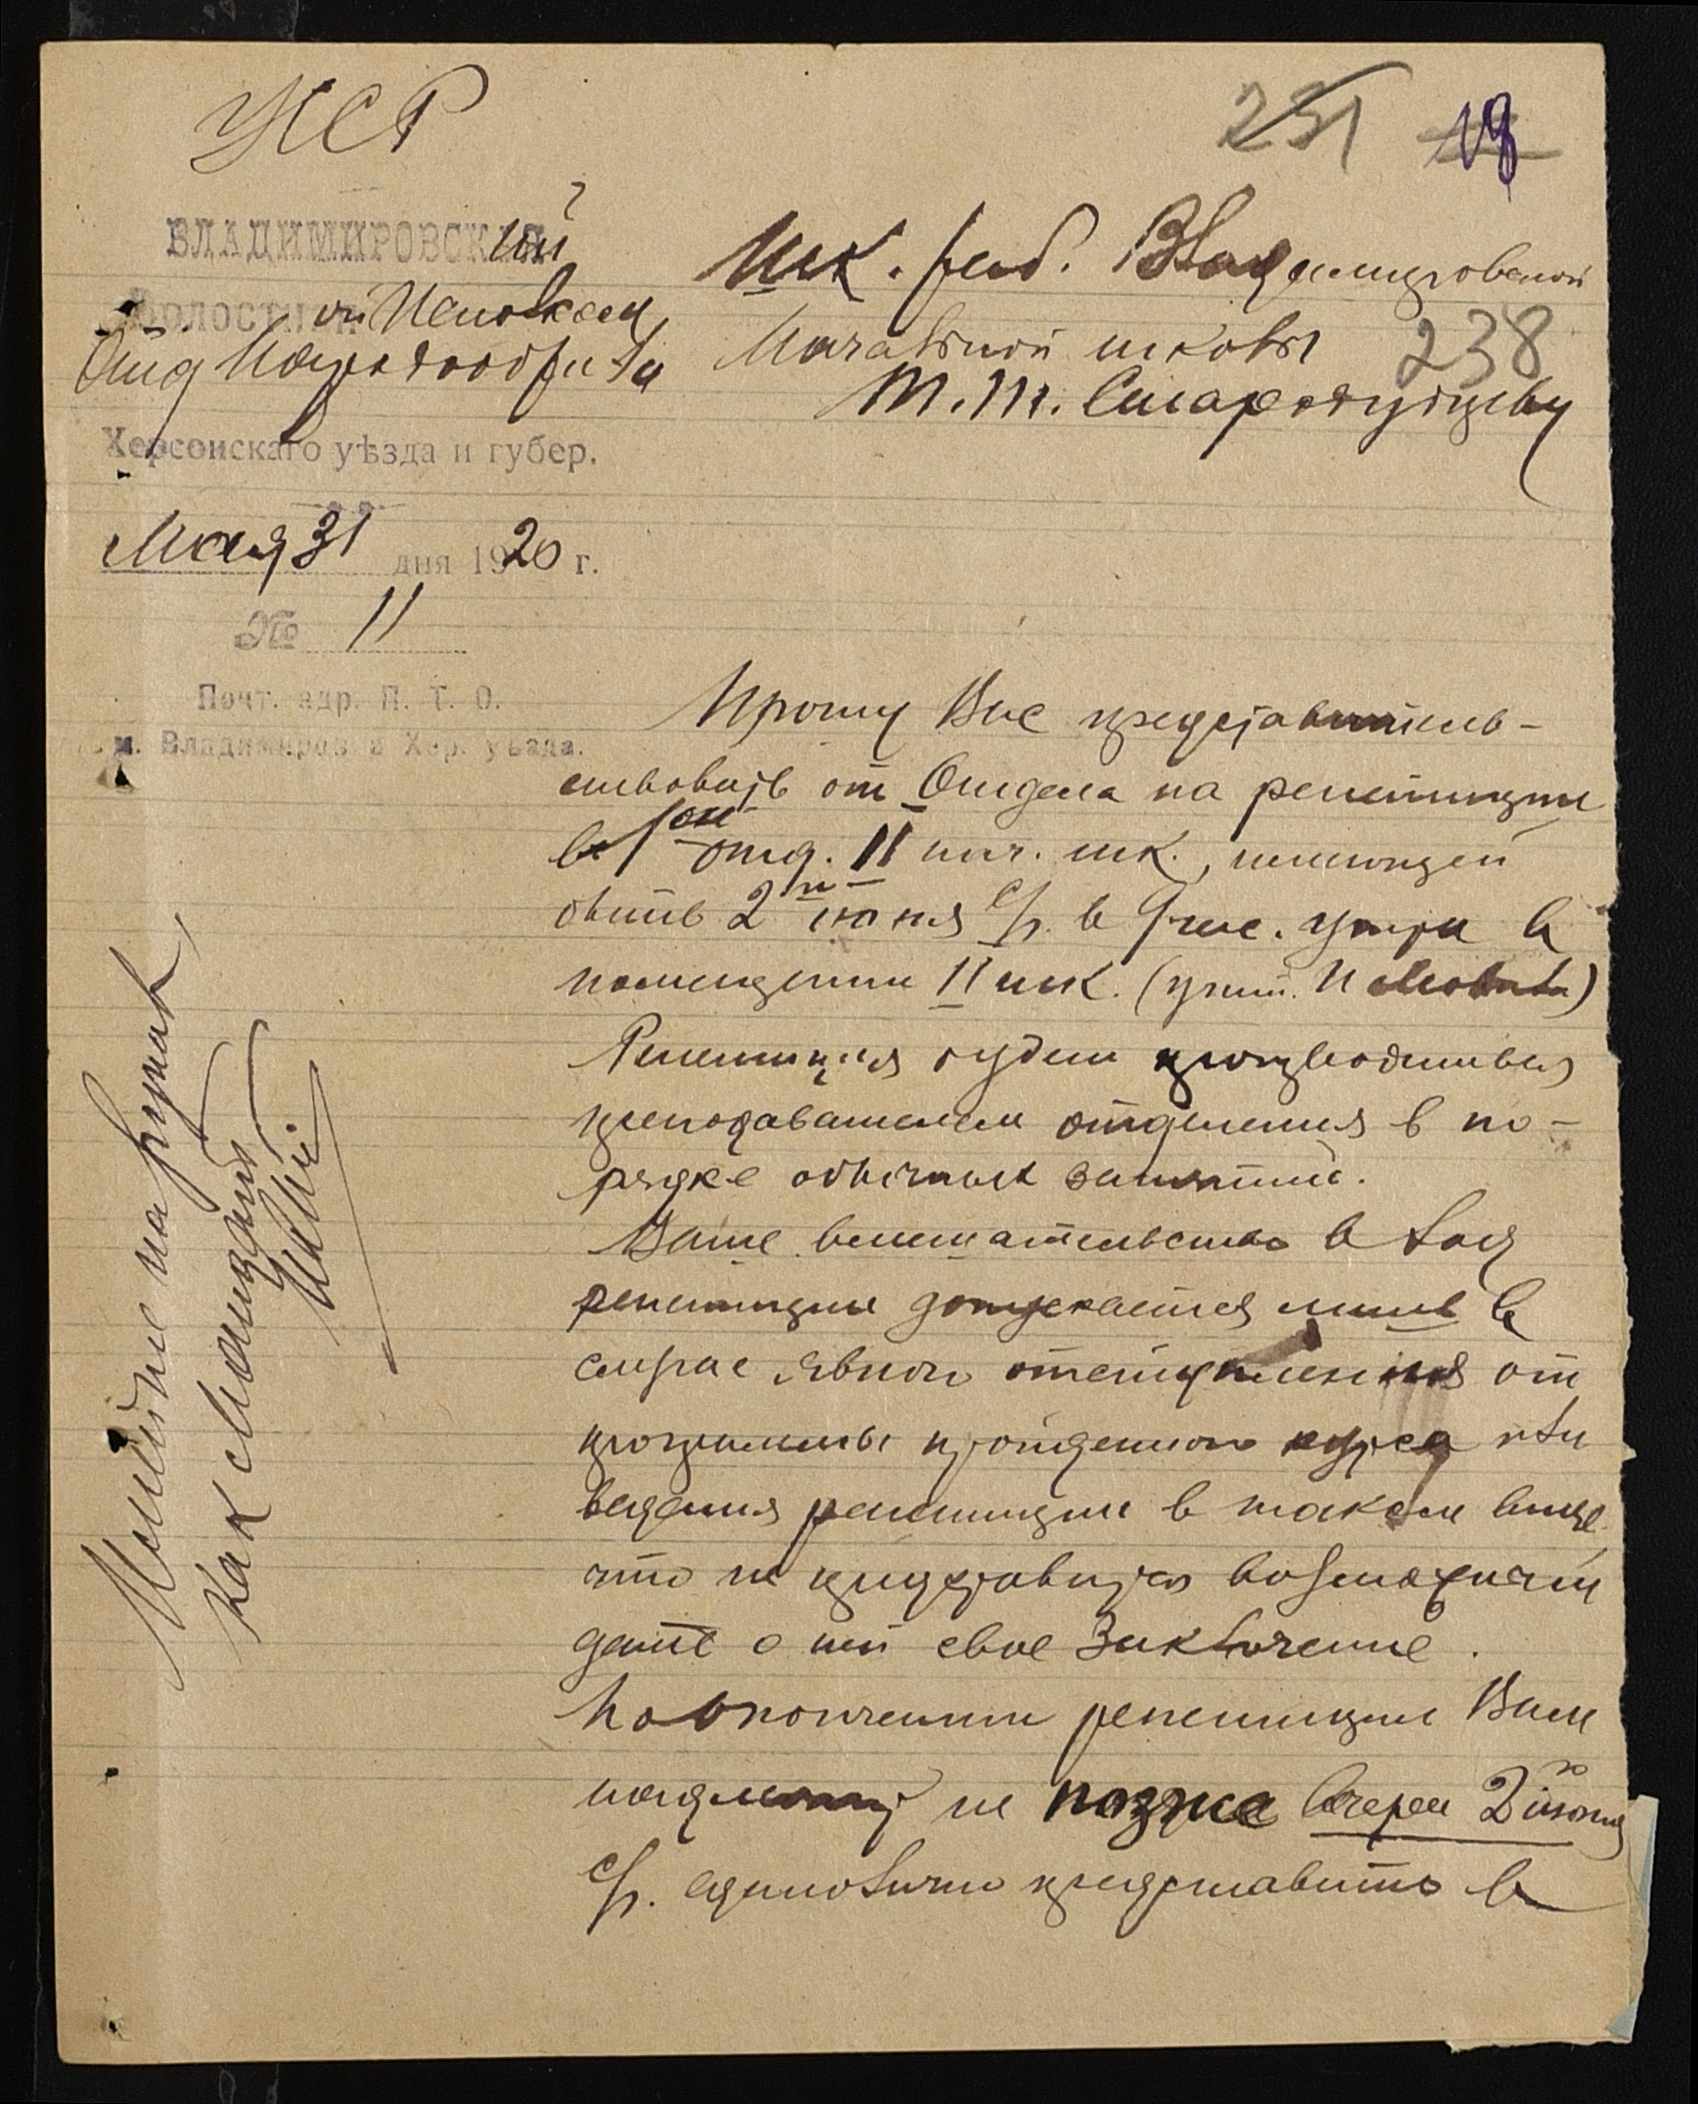 УСР
231 19
ВЛАДИМИРОВСКИЙ
Волостной Исполком
Отд Народообраз
Херсонскаго уѣзда и губер.
Мая 31 дня 1920 г.
№ 11
Почт. адр. П. Т. О.
м. Владимировка Хер. уезда.
Шк. раб. Владимировской
Начальной школы 238
Т. М. Стародубцеву
Прошу Вас представитель-
ствовать от Отдела на репетиции
в 1ом отд. II нач. шк., имеющей
быть 2го июня с/г. в 9 час. утра в
помещении II шк.
Репетиция будет производиться
преподавателем отделения в по-
рядке обычных занятий.
Ваше вмешательство в ход
репетиции допускается лишь в
случае явного отступления от
программы пройденного курса или
ведения репетиции в таком виде
что не представится возможности
дать о ней свое заключение.
По окончании репетиции Вам
надлежит не позже вечера 2го июня
с/г. единолично представить в
как